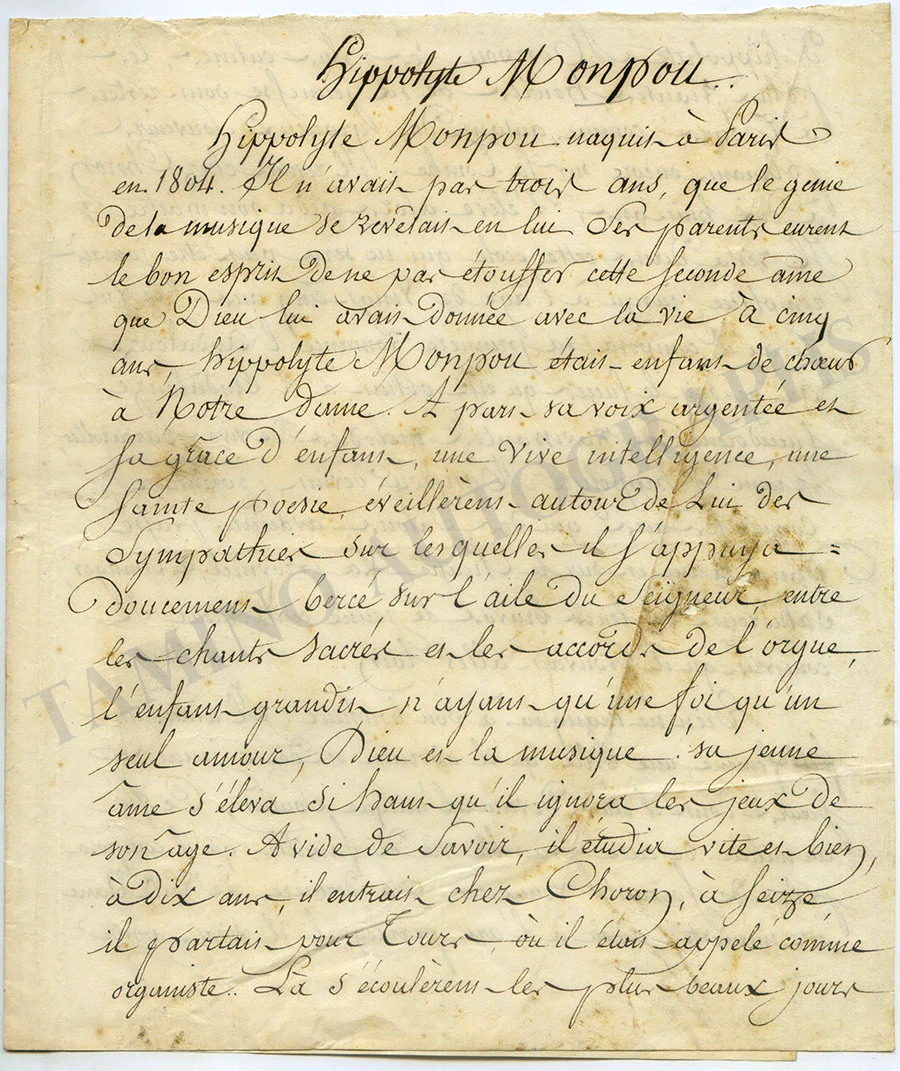 Hippolyte Monpou.
Hippolyte Monpou naquit à Paris
en 1804. Il n'avait pas trois ans, que le génie
de la musique se révélait en lui Ses parents eurent
le bon esprit de ne pas étouffer cette seconde âme
que Dieu lui avait donnée avec la vie À cinq
ans, hippolyte Monpou était enfant de chœur
à Notre dame. A part sa voix argentée et
sa grâce d'enfant, une vive intelligence, une
Sainte poésie, éveillèrent autour de Lui des
Sympathies sur lesquelles il s'appuya =
doucement bercé sur l'aile du Seigneur, entre
les chants sacrés et les accords de l'orgue,
l'enfant grandit n'ayant qu'une foi qu'un
seul amour, Dieu et la musique ! sa jeune
âme s'éleva si haut qu'il ignora les jeux de
son age. Avide de savoir, il étudia vite et bien,
à dix ans, il entrait chez Choron, à seize
il partait pour Tours, où il était appelé comme
organiste.. Là s'écoulèrent les plus beaux jours
TAMINO AUTOGRAPHS